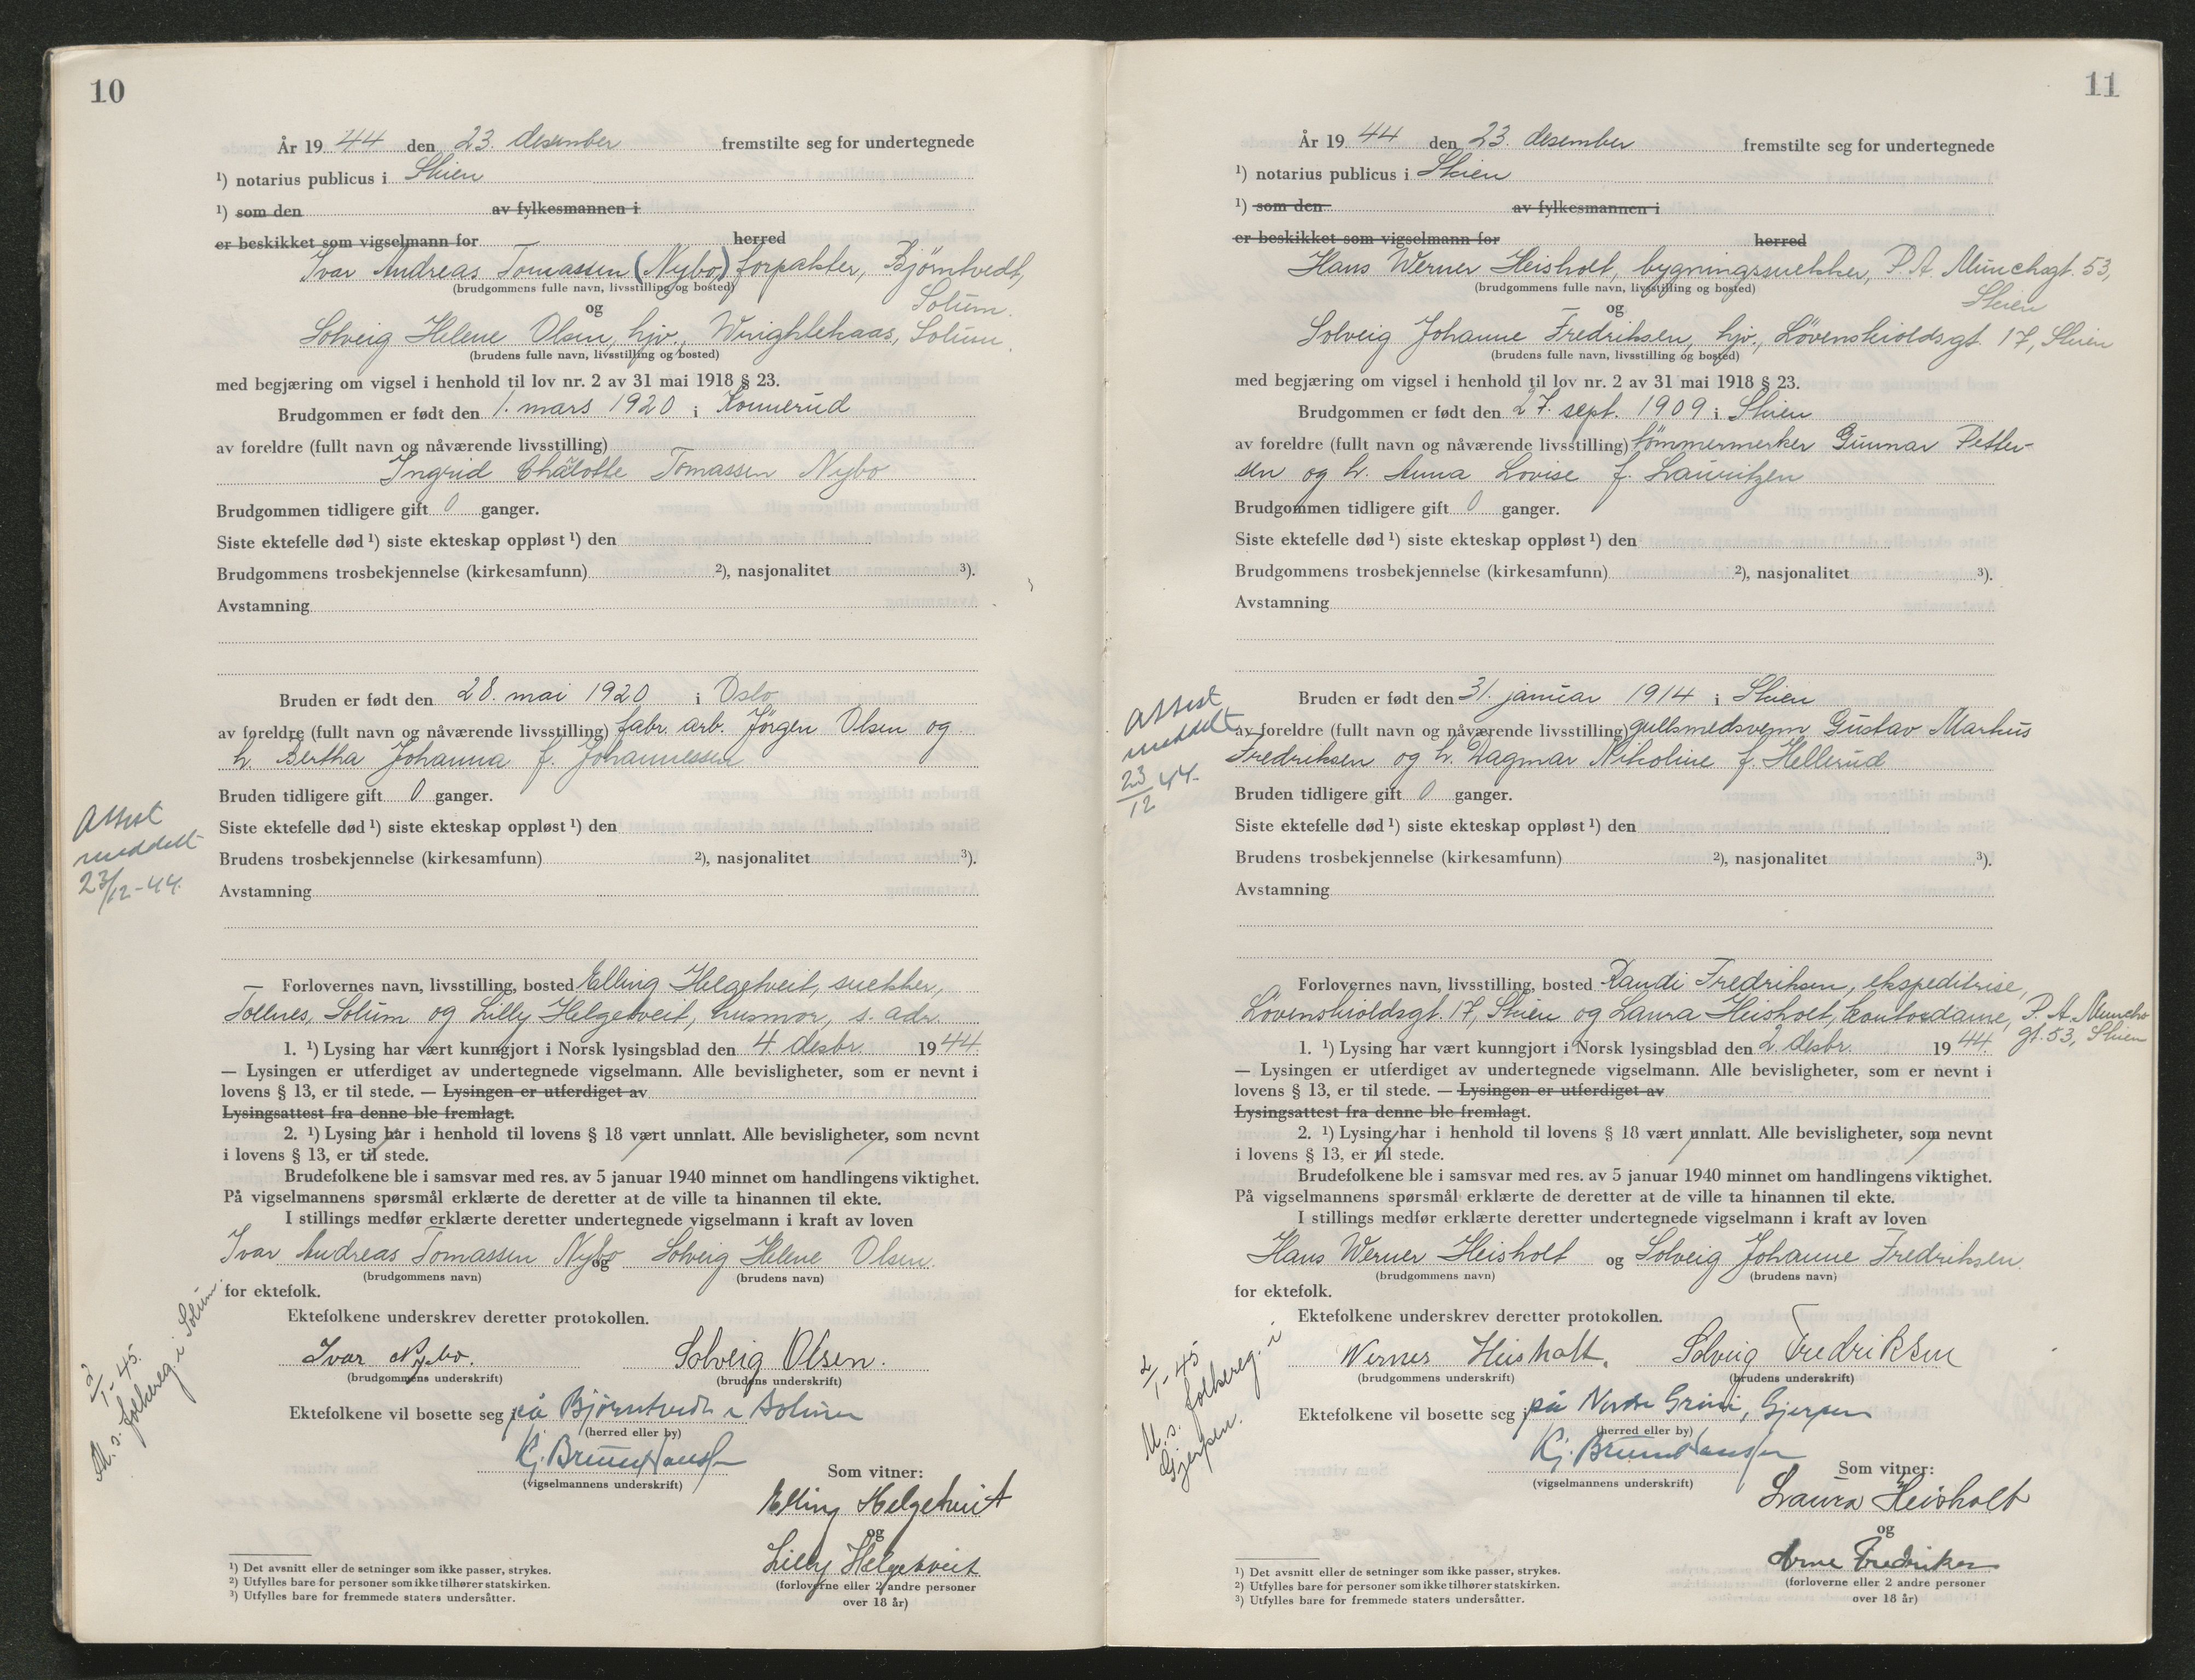 10
År 19 44 den 23. desember fremstilte seg for undertegnede
¹) notarius publicus i Skien
¹) som den av fylkesmannen i
er beskikket som vigselmann for herred
Ivar Andreas Tomassen (Nybo) forpakter, Bjørntvedt,
(brudgommens fulle navn, livsstilling og bosted)
Solum.
og
Solveig Helene Olsen, hjv., Wrighlehaas, Solum.
(brudens fulle navn, livsstilling og bosted)
med begjæring om vigsel i henhold til lov nr. 2 av 31 mai 1918 § 23.
Brudgommen er født den 1. mars 1920 i Konnerud
av foreldre (fullt navn og nåværende livsstilling)
Ingrid Chalotte Tomassen Nybo
Brudgommen tidligere gift 0 ganger.
Siste ektefelle død ¹) siste ekteskap oppløst ¹) den
Brudgommens trosbekjennelse (kirkesamfunn) ²), nasjonalitet ³).
Avstamning
Bruden er født den 28. mai 1920 i Oslo
av foreldre (fullt navn og nåværende livsstilling) fabr. arb. Jörgen Olsen og
h. Bertha Johanna f. Johannessen
Bruden tidligere gift 0 ganger.
Siste ektefelle død ¹) siste ekteskap oppløst ¹) den
Brudens trosbekjennelse (kirkesamfunn) ²), nasjonalitet ³).
Avstamning
Attest
meddelt
23/12-44.
Forlovernes navn, livsstilling, bosted Elling Helgetveit, snekker,
Tollnes, Solum og Lilly Helgetveit, husmor, s. adr.
1. ¹) Lysing har vært kunngjort i Norsk lysingsblad den 4. desbr. 19 44.
— Lysingen er utferdiget av undertegnede vigselmann. Alle bevisligheter, som er nevnt i
lovens § 13, er til stede. — Lysingen er utferdiget av
Lysingsattest fra denne ble fremlagt.
2. ¹) Lysing har i henhold til lovens § 18 vært unnlatt. Alle bevisligheter, som nevnt
i lovens § 13, er til stede.
Brudefolkene ble i samsvar med res. av 5 januar 1940 minnet om handlingens viktighet.
På vigselmannens spørsmål erklærte de deretter at de ville ta hinannen til ekte.
I stillings medfør erklærte deretter undertegnede vigselmann i kraft av loven
Ivar Andreas Tomassen Nybo og Solveig Helene Olsen.
(brudgommens navn) (brudens navn)
for ektefolk.
Ektefolkene underskrev deretter protokollen.
Ivar Nybo. Solveig Olsen.
(brudgommens underskrift) (brudens underskrift)
Ektefolkene vil bosette seg på Bjørntvedt i Solum
(herred eller by)
Kj. Bruun Hansen
(vigselmannens underskrift)
2/1-45.
M. s. folkereg. i Solum.
Som vitner:
Elling Helgetveit
og
Lilly Helgetveit
(forloverne eller 2 andre personer
over 18 år)
¹) Det avsnitt eller de setninger som ikke passer, strykes.
²) Utfylles bare for personer som ikke tilhører statskirken.
³) Utfylles bare for fremmede staters undersåtter.
11
År 19 44 den 23. desember fremstilte seg for undertegnede
¹) notarius publicus i Skien
¹) som den av fylkesmannen i
er beskikket som vigselmann for herred
Hans Werner Heisholt, bygningssnekker, P. A. Munchsgt. 53,
(brudgommens fulle navn, livsstilling og bosted)
Skien
og
Solveig Johanne Fredriksen, hjv., Løvenskioldsgt. 17, Skien
(brudens fulle navn, livsstilling og bosted)
med begjæring om vigsel i henhold til lov nr. 2 av 31 mai 1918 § 23.
Brudgommen er født den 27. sept. 1909 i Skien
av foreldre (fullt navn og nåværende livsstilling) tömmermerker Gunnar Petter-
sen og h. Anna Lovise f. Lauritzen
Brudgommen tidligere gift 0 ganger.
Siste ektefelle død ¹) siste ekteskap oppløst ¹) den
Brudgommens trosbekjennelse (kirkesamfunn) ²), nasjonalitet ³).
Avstamning
Bruden er født den 31. januar 1914 i Skien
av foreldre (fullt navn og nåværende livsstilling) gullsmedsvenn Gustav Markus
Fredriksen og h. Dagmar Nikoline f. Hellerud
Bruden tidligere gift 0 ganger.
Siste ektefelle død ¹) siste ekteskap oppløst ¹) den
Brudens trosbekjennelse (kirkesamfunn) ²), nasjonalitet ³).
Avstamning
Attest
meddelt
23/12 44.
Forlovernes navn, livsstilling, bosted Randi Fredriksen, ekspeditrise,
Løvenskioldsgt. 17, Skien og Laura Heisholt, kontordame, P. A. Munchs
gt. 53, Skien
1. ¹) Lysing har vært kunngjort i Norsk lysingsblad den 2. desbr. 19 44.
— Lysingen er utferdiget av undertegnede vigselmann. Alle bevisligheter, som er nevnt i
lovens § 13, er til stede. — Lysingen er utferdiget av
Lysingsattest fra denne ble fremlagt.
2. ¹) Lysing har i henhold til lovens § 18 vært unnlatt. Alle bevisligheter, som nevnt
i lovens § 13, er til stede.
Brudefolkene ble i samsvar med res. av 5 januar 1940 minnet om handlingens viktighet.
På vigselmannens spørsmål erklærte de deretter at de ville ta hinannen til ekte.
I stillings medfør erklærte deretter undertegnede vigselmann i kraft av loven
Hans Werner Heisholt og Solveig Johanne Fredriksen.
(brudgommens navn) (brudens navn)
for ektefolk.
Ektefolkene underskrev deretter protokollen.
Werner Heisholt. Solveig Fredriksen
(brudgommens underskrift) (brudens underskrift)
Ektefolkene vil bosette seg på Nordre Grini, Gjerpen
(herred eller by)
Kj. Bruun Hansen
(vigselmannens underskrift)
2/1-45
M. s. folkereg. i
Gjerpen.
Som vitner:
Laura Heisholt
og
Arne Fredriksen
(forloverne eller 2 andre personer
over 18 år)
¹) Det avsnitt eller de setninger som ikke passer, strykes.
²) Utfylles bare for personer som ikke tilhører statskirken.
³) Utfylles bare for fremmede staters undersåtter.